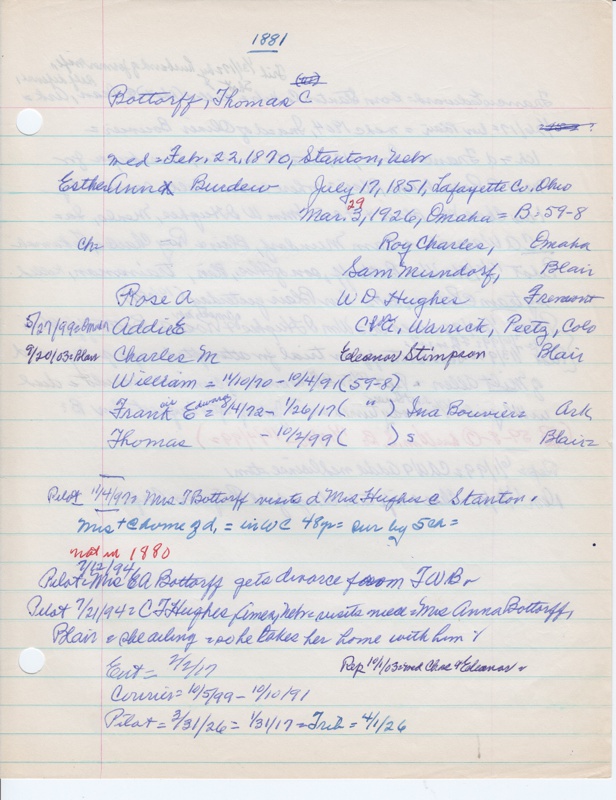 1881
Bottorff, Thomas C
med = Feb. 22, 1870, Stanton, Nebr
Esther Anna Burdew July 17, 1851, Lafayette Co, Ohio
29
Mar. 3, 1926, Omaha = B = 59-8
ch = Roy Charles, Omaha
Sam Mundorf, Blair
Rose A W D Hughes Fremont
5/27/99 = Omaha Addie E Warrick, Peetz, Colo
9/20/03 = Blair Charles M Eleanor Stimpson Blair
William = 11/10/70 - 10/4/91 (59-8)
Frank E = 2/4/72 - 1/26/17 ( " ) Ina Bouvier = Ark
Thomas - 10/2/99 ( ) s Blair =
Pilot 11/4/97 = Mrs T Bottorff visits d Mrs Hughes c Stanton.
Mrs + C home = in WC 48 yr = sur by 5 ch =
not in 1880
7/12/94
Pilot = Mrs E A Bottorff gets divorce from T W B.
Pilot 7/21/94 = C T Hughes, Nebr = visits = Mrs Anna Bottorff,
Blair = she ailing = so he takes her home with him
Ent = 2/2/17 Rep 10/1/03 = Chas & Eleanor =
Courier = 10/5/99 - 10/10/91
Pilot = 3/31/26 = 1/31/17 = Trib = 4/1/26